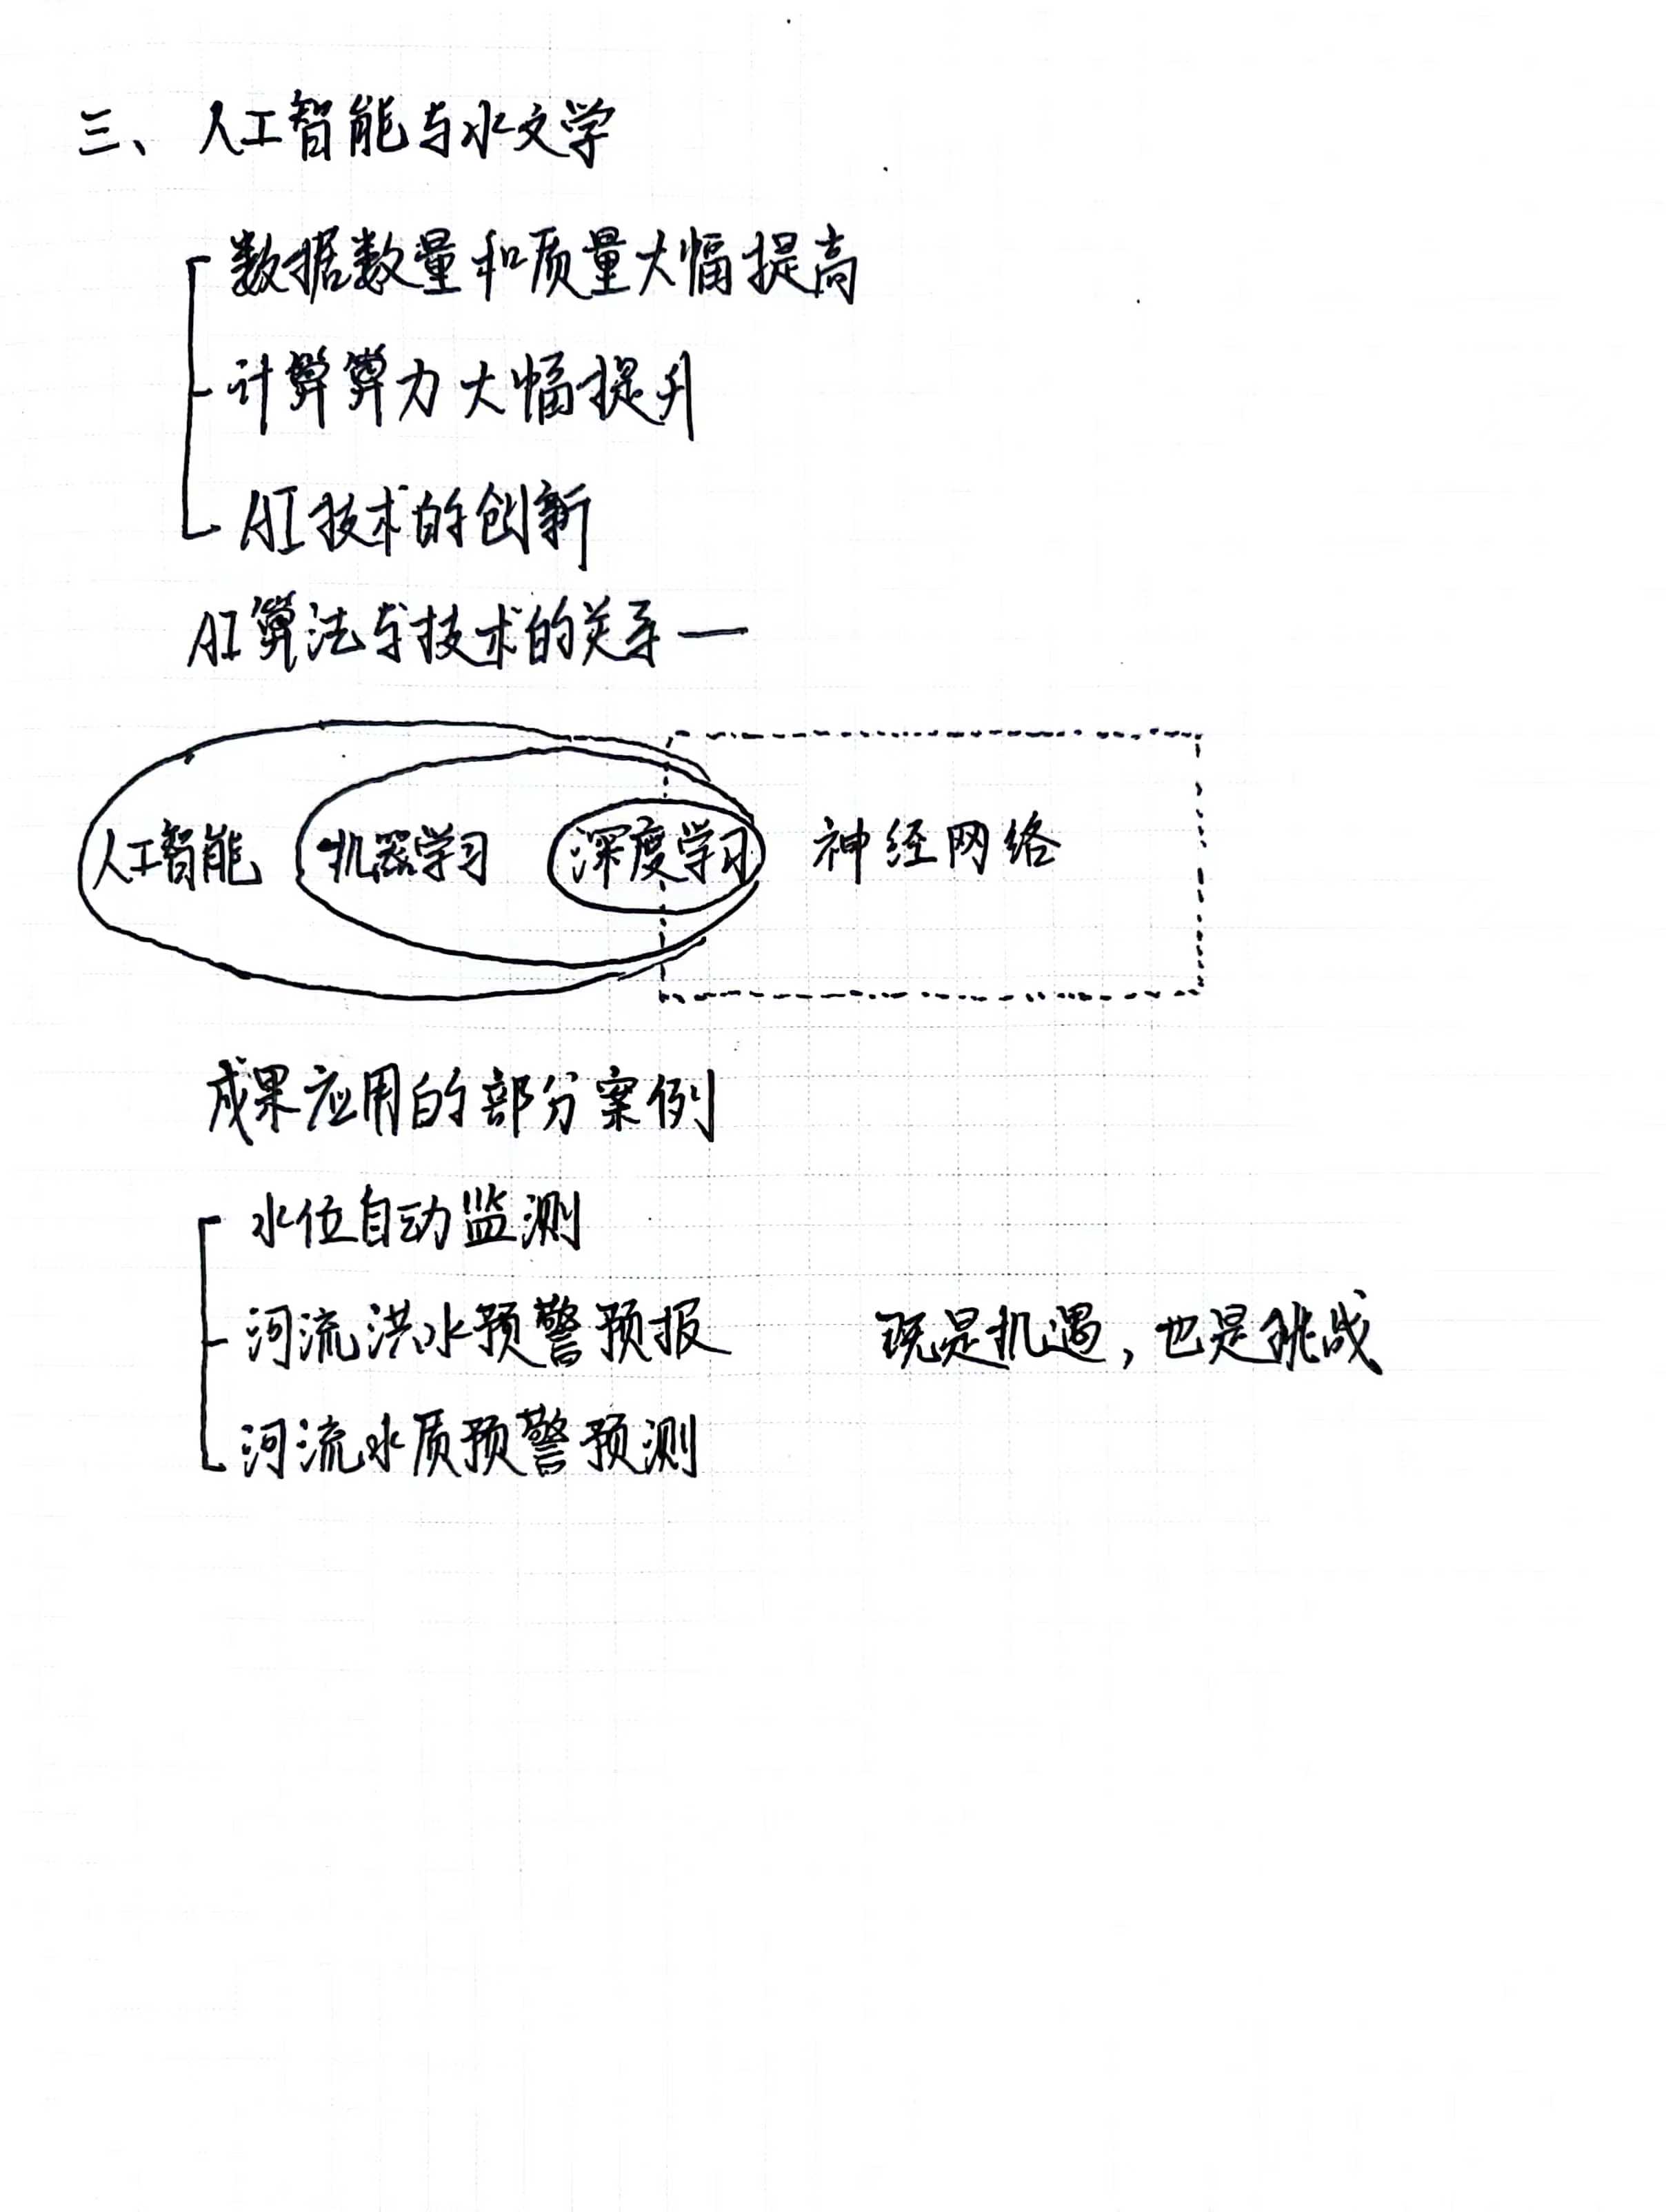 三、人工智能与水文学
数据数量和质量大幅提高
计算算力大幅提升
AI技术的创新
AI算法与技术的关系—
人工智能 机器学习 深度学习 神经网络
成果应用的部分案例
水位自动监测
河流洪水预警预报 既是机遇，也是挑战
河流水质预警预测